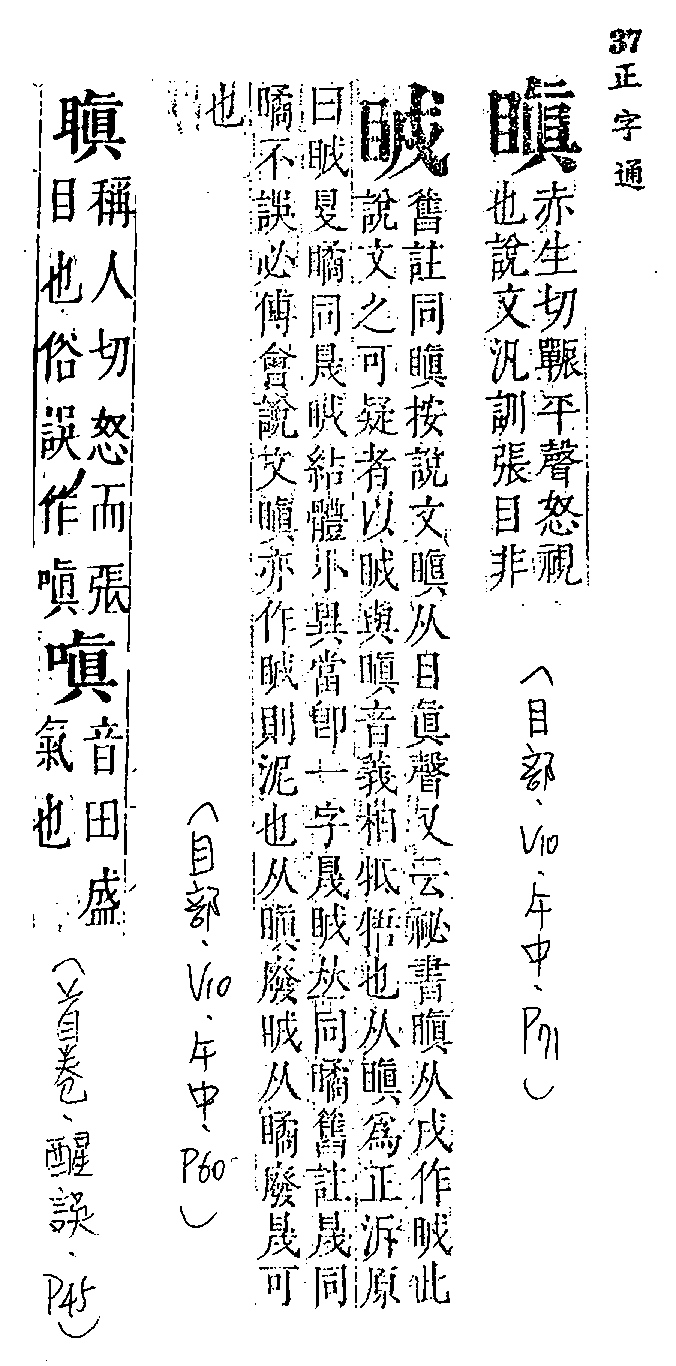 37正字通
瞋
赤生切䡅平聲怒視
也說文汎訓張目非
(目部、V10、午中、P71)
䀼
舊註同瞋按說文瞋从目眞聲又云祕書瞋从戌作䀼此
說文之可疑者以䀼與瞋音義相牴牾也从瞋爲正泝原
曰䀼旻瞲同晟䀼結體小異當卽一字晟䀼𠀤同瞲舊註晟同
瞲不誤必傅會說文瞋亦作䀼則泥也从瞋廢䀼从瞲廢晟可
也
(目部、V10、午中、P60)
瞋
稱人切怒而張
目也俗誤作嗔
嗔
音田盛
氣也
(首卷、醒誤、P45)